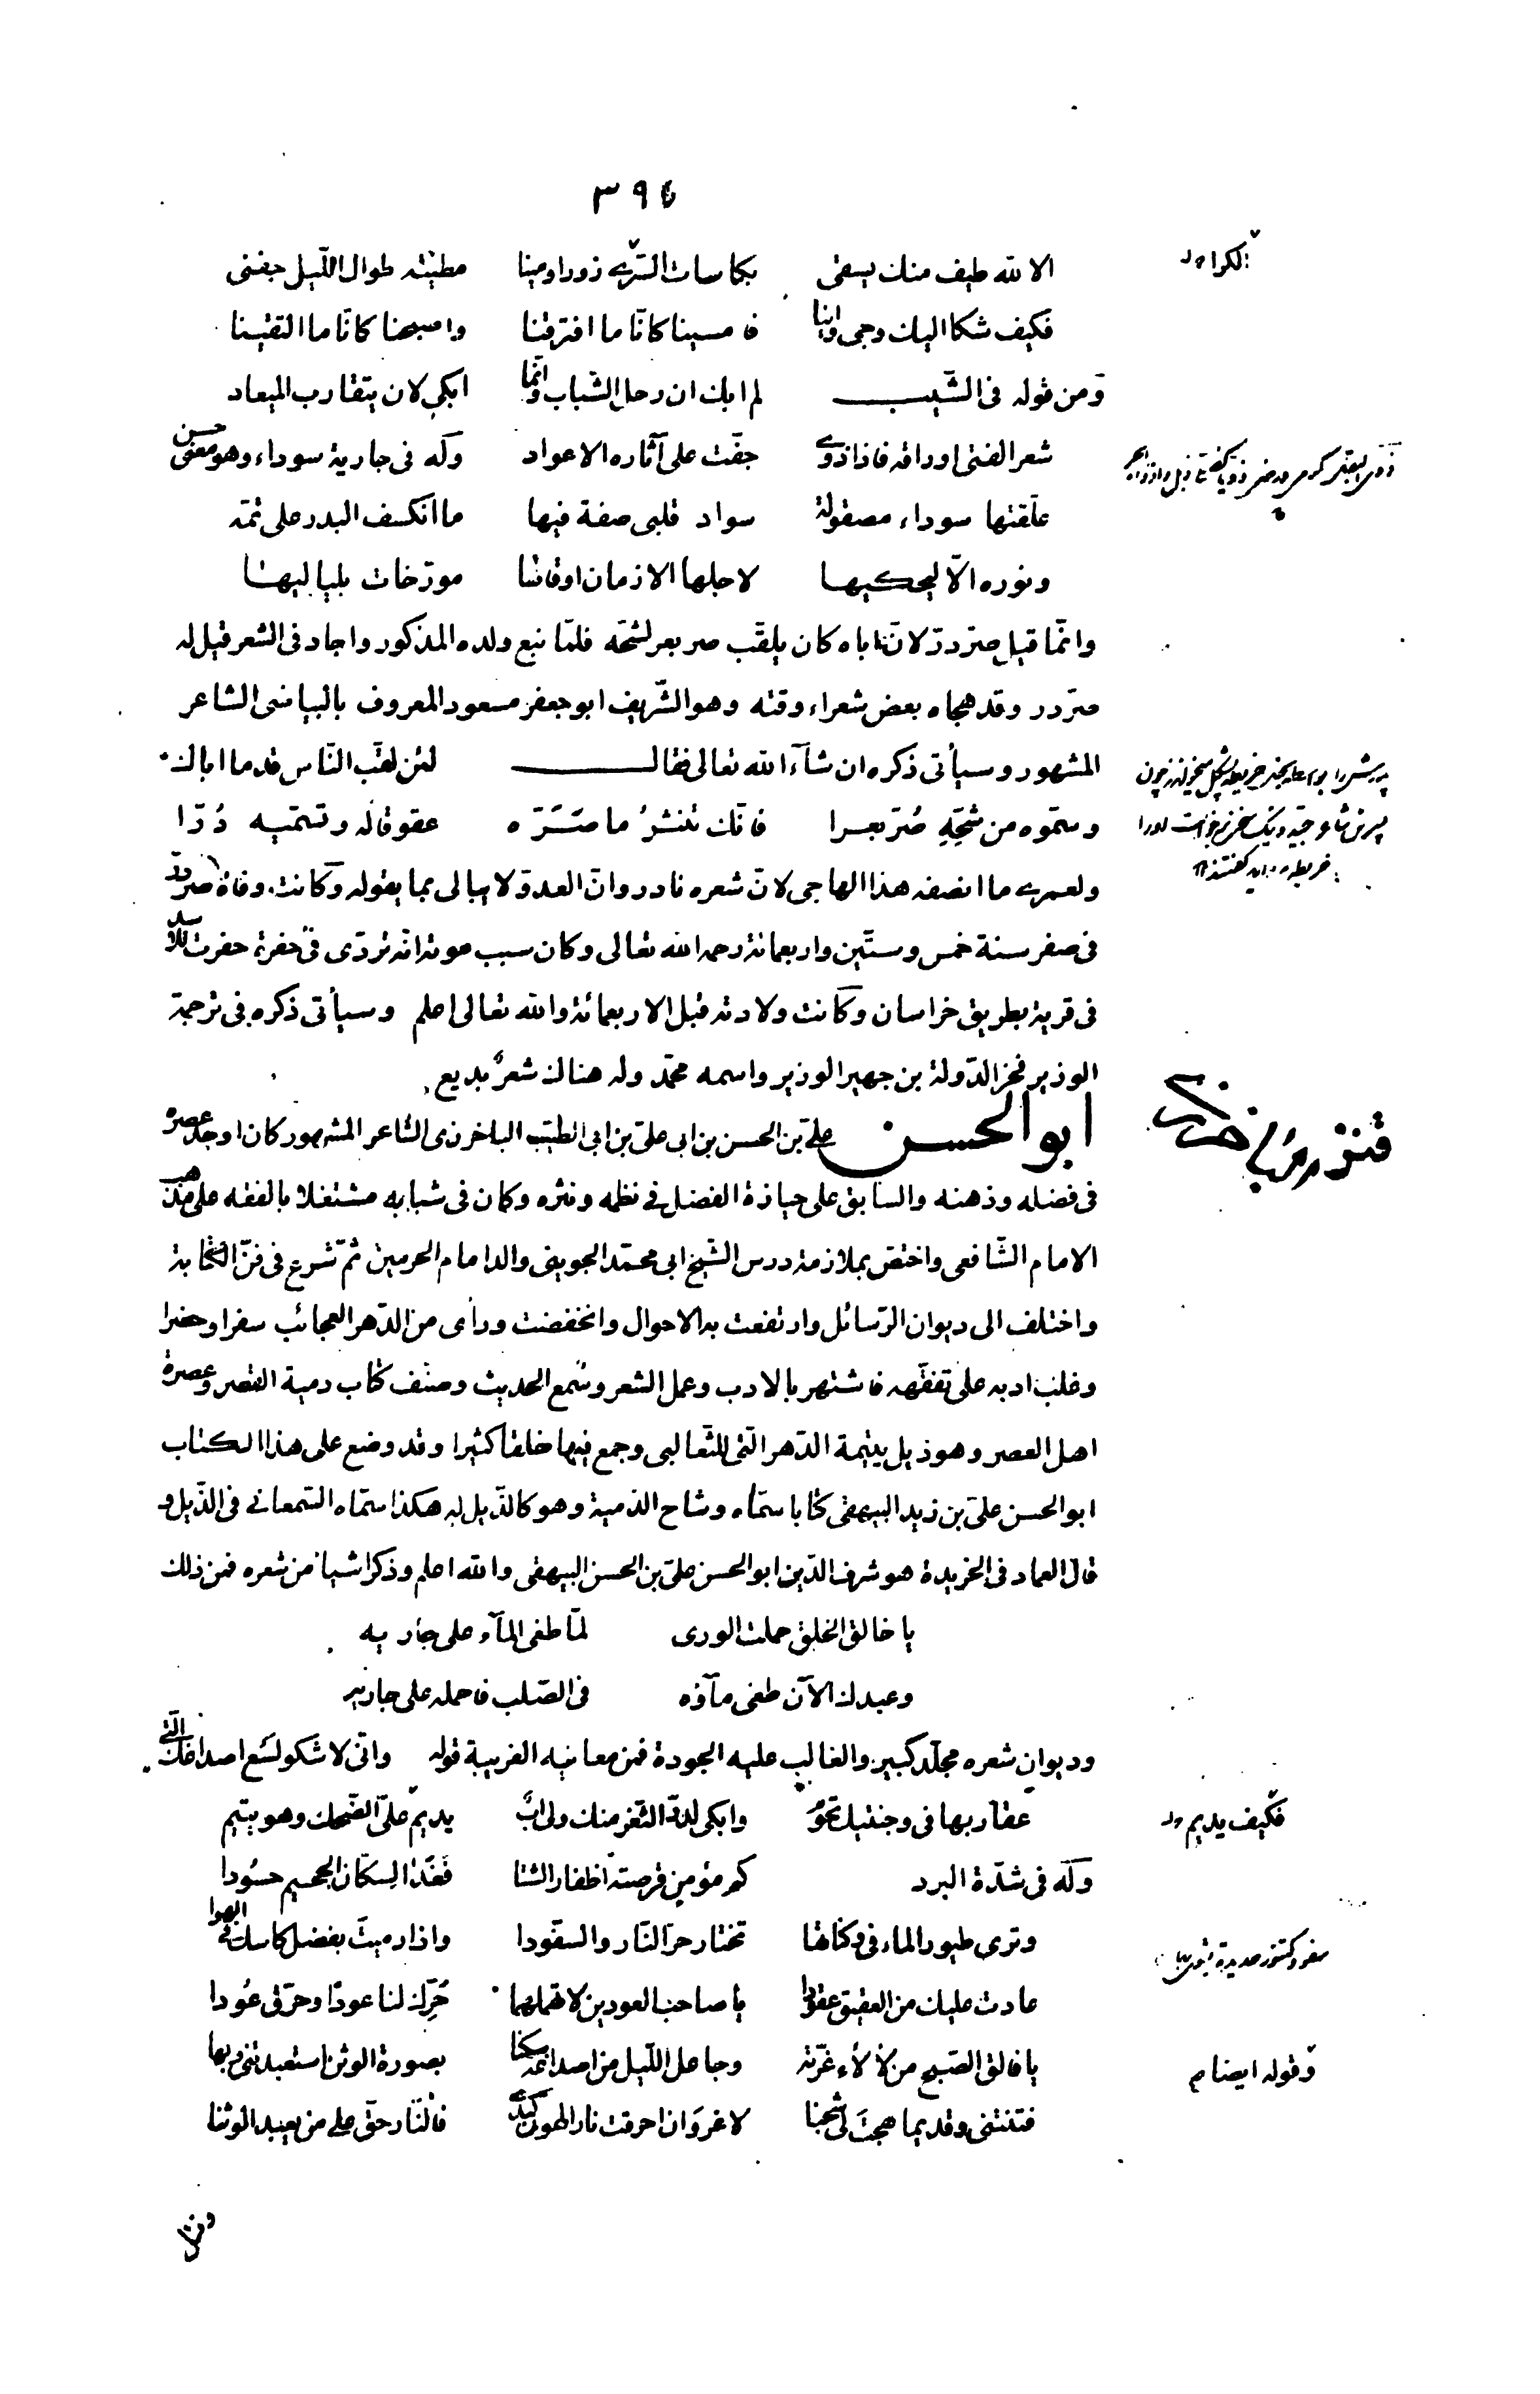 ٣٩٤
الا لله طيف منك يسقى بكاسات السّرى زورا ومينا مطيّته طوال اللّيل جفنى
الكرا
فكيف شكا اليك وجى واينا فامسينا كانّا ما افترقنا واصبحنا كانّا ما التقينا
ومن قوله فى الشّيب لم ابك ان رحل الشّباب وانّما ابكى لان يتقارب الميعاد
شعر الفتى اوراقه فاذا ذوى جفّت على آثاره الاعواد وله فى جارية سوداء وهو معنى حسن
علّقتها سوداء مصقولة سواد قلبى صفة فيها ما انكسف البدر على تمّه
ونوره الّا ليحكيها لاجلها الازمان اوقاتها مورّخات بلياليها
وانّما قيل صرّدرّ لانّ اباه كان يلقّب صرّبعر لشحّه فلمّا نبع ولده المذكور واجاد فى الشعر قيل له
صرّدر وقد هجاه بعض شعراء وقته وهو الشّريف ابو جعفر مسعود المعروف بالبياضى الشاعر
المشهور وسيأتى ذكره ان شآء الله تعالى فقال لئن لقّب النّاس قدما اباك
وسمّوه من شحّه صُرّبعرا فانّك تنثرُ ما صَرّه عقوقا له وتسمّيه دُرّا
ولعمرى ما انصفه هذا الهاجى لانّ شعره نادر وانّ العدوّ لا يبالى بما يقوله وكانت وفاة صرّدرّ
فى صفر سنة خمس وستّين واربعمائة رحمه الله تعالى وكان سبب موته انّه تردّى فى حفرة حفرت للاسد
فى قرية بطريق خراسان وكانت ولادته قبل الاربعمائة والله تعالى اعلم وسيأتى ذكره فى ترجمة
الوزير فخر الدّولة بن جهير الوزير واسمه محمّد وله هنالك شعرٌ بديع
ابو الحسن علىّ بن الحسن بن ابى علىّ بن ابى الطيّب الباخرزى الشاعر المشهور كان اوحد عصره
فى فضله وذهنه والسابق على حيازة الفضل فى نظمه ونثره وكان فى شبابه مشتغلا بالفقه على مذهب
الامام الشّافعى واختصّ بملازمة درس الشّيخ ابى محمّد الجوينى والد امام الحرمين ثمّ شرع فى فنّ الكتابة
واختلف الى ديوان الرّسائل وارتفعت به الاحوال وانخفضت ورأى من الدّهر العجائب سفرا وحضرا
وغلب ادبه على تفقّهه فاشتهر بالادب وعمل الشعر وسمع الحديث وصنّف كتاب دمية القصر وعصرة
اهل العصر وهو ذيل يتيمة الدّهر الّتى للثّعالبى وجمع فيها خلقا كثيرا وقد وضع على هذا الكتاب
ابو الحسن علىّ بن زيد البيهقى كتابا سمّاه وشاح الدّمية وهو كالذّيل له هكذا سمّاه السّمعانى فى الذّيل و
قال العماد فى الخريدة هو شرف الدّين ابو الحسن علىّ بن الحسن البيهقى والله اعلم وذكر اشيا من شعره فمن ذلك
يا خالق الخلق حملت الورى لمّا طغى المآء على جاريه
وعبدك الآن طغى مآؤه فى الصّلب فاحمله على جاريه
وديوان شعره مجلّد كبير والغالب عليه الجودة فمن معانيه الغريبة قوله وانّى لاشكو لسع اصداغك الّتى
عقاربها فى وجنتيك تحومُ وابكى لدرّ الثّغر منك ولى ابٌ يديم علىّ الضّحك وهو يتيم
فكيف يديم
وله فى شدّة البرد كم مؤمن قرصته اظفار الشتا فغدا لسكّان الجحيم حسُودا
وترى طيور الماء فى وكناتها تختار حرّ النّار والسفّودا واذا رميت بفضل كاسك فى الهوا
عادت عليك من العقيق عقودا يا صاحب العودين لا تهملهما حَرِّك لنا عودًا وحرّق عُودا
يا فالق الصّبح من لألاء غرّته وجاعل اللّيل من اصداغه سكنا بصورة الوثن استعبدتنى وبها
وقوله ايضا
فتنتنى وقديما هجت لى شجنا لا غرو ان احرقت نار الهوى كبدى فالنّار حقّ على من يعبد الوثنا